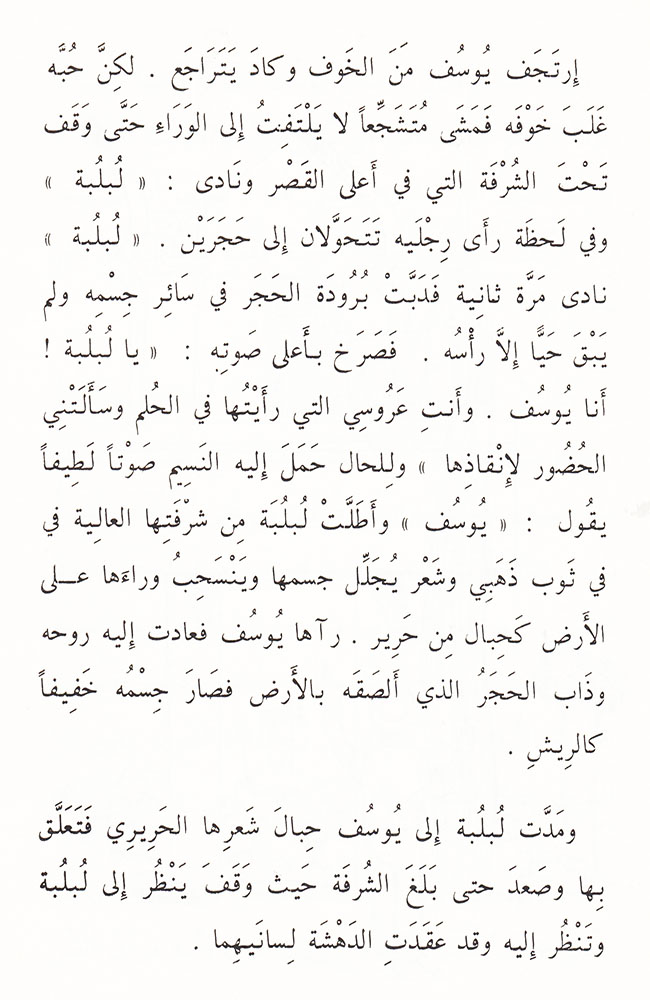 إِرتَجَف يُوسُف مَنَ الخَوف وكادَ يَتَرَاجَع . لكِنَّ حُبَّه
غَلَبَ خَوْفَه فَمَشَى مُتَشَجِّعاً لا يَلْتَفِتُ إِلى الوَرَاءِ حَتَّى وَقَف
تَحْتَ الشُرْفَة التي في أَعلى القَصْر ونَادى : « لُبلُبة »
وفي لَحظَة رأَى رِجْلَيه تَتَحَوَّلان إِلى حَجَرَيْن . « لُبلُبة »
نادى مَرَّة ثانِية فَدَبَّتْ بُرُودَة الحَجَر في سَائِر جِسْمِه ولم
يَبْقَ حَيًّا إِلاَّ رأْسُه . فَصَرَخ بأَعلى صَوتِه : « يا لُبلُبة !
أَنا يُوسُف . وأَنتِ عَرُوسِي التي رأَيْتُها في الحُلم وسَأَلَتْنِي
الحُضُور لإِنْقاذِها » ولِلحال حَمَلَ إِليه النَسِيم صَوْتاً لَطِيفاً
يقُول : « يُوسُف » وأَطَلَّتْ لُبلُبَة مِن شرْفَتِها العالِية في
في ثَوب ذَهَبِي وشَعْر يُجَلِّل جسمها ويَنْسَحِبُ وراءَها عـلى
الأَرض كَحِبال مِن حَرِير . رآها يُوسُف فعادت إِليه روحه
وذَاب الحَجَرُ الذي أَلصَقَه بالأَرض فصَارَ جِسْمُه خَفِيفاً
كالرِيشِ .
ومَدَّت لُبلُبة إِلى يُوسُف حِبالَ شَعرِها الحَرِيرِي فَتَعَلَّق
بِها وصَعدَ حتى بَلَغَ الشُرفَة حَيث وَقَفَ يَنْظُر إِلى لُبلُبة
وتَنْظُر إِليه وقد عَقَدَتِ الدَهْشَة لِسانَيهِما .